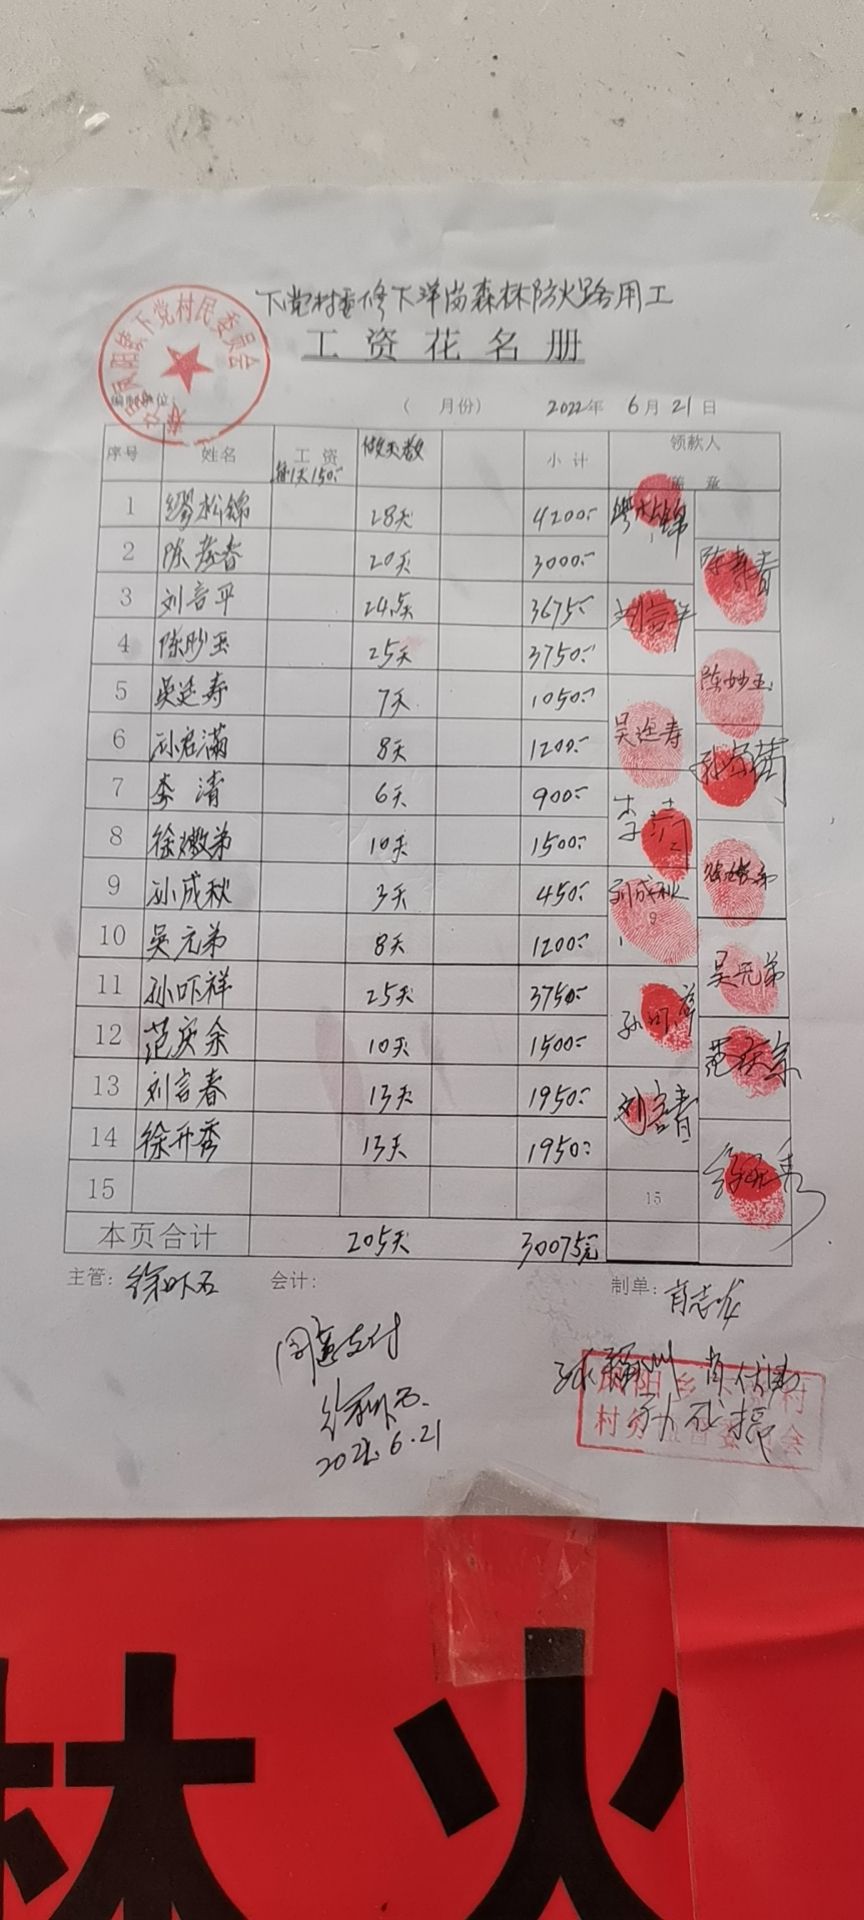 下党村委修下洋岗森林防火路用工
工资花名册
下党村民委员会
编制单位:
( 月份) 2022年 6月21日
序号 姓名 工资 每1天150.- 做天数 小计 领款人
1 缪松锦 28天 4200.- 缪松锦
2 陈寿春 20天 3000.- 陈寿春
3 刘言平 24.5天 3675.- 刘言平
4 陈妙玉 25天 3750.- 陈妙玉
5 吴延寿 7天 1050.- 吴延寿
6 孙启满 8天 1200.-
7 李清 6天 900.- 李清
8 徐嫩弟 10天 1500.- 徐嫩弟
9 孙成秋 3天 450.- 刘成秋 9
10 吴元弟 8天 1200.- 吴元弟
11 孙吓祥 25天 3750.- 孙吓祥
12 范庆余 10天 1500.- 范庆余
13 刘言春 13天 1950.- 刘言春
14 徐开秀 13天 1950.-
15 15
本页合计 205天 30075元
主管: 徐吓石 会计: 制单: 肖志
同意支付
徐吓石.
2022.6.21
阳乡 村
村务监督委员会
林火